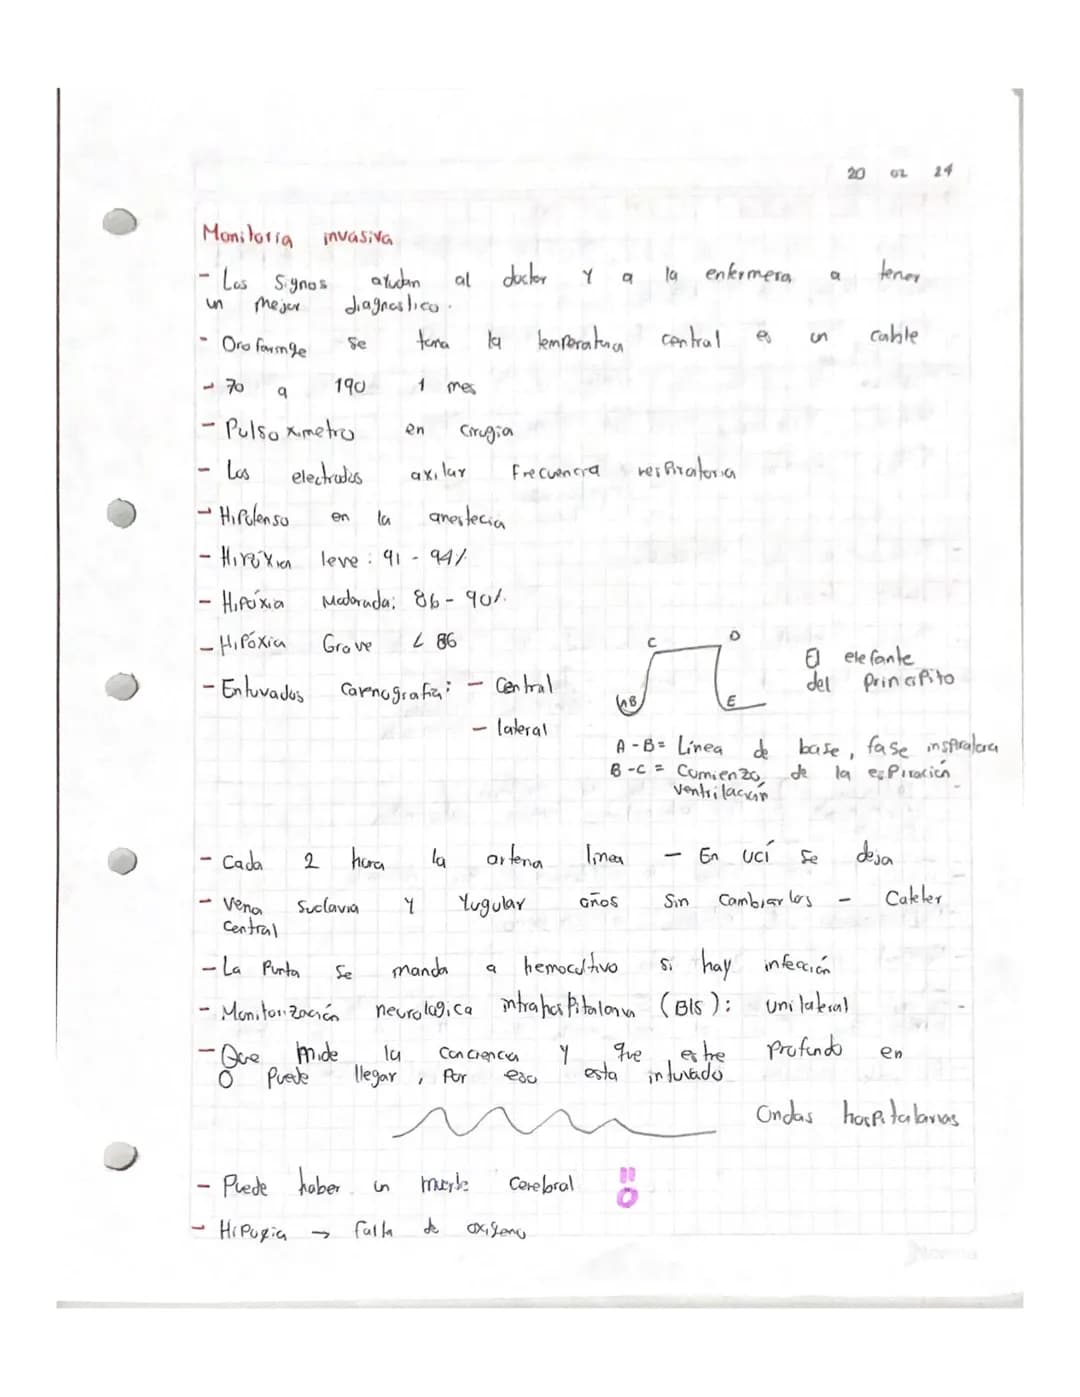 20 02 24
Monitoria invasiva
- Los Signos ayudan al doctor Y a la enfermera a tener
un mejor diagnostico.
- Orofaringe se toma la temperatura central es un cable
- 70 a 190 1 mes
- Pulsoximetro en Cirugia
- Los electrodos axilar Frecuencia respiratoria
- Hipotenso en la anestecia
- Hipóxia leve: 91 - 94%
- Hipóxia Moderada: 86 - 90%
- Hipóxia Grave < 86
- Entuvados Capnografia: - Central
- lateral
C D
AB E
El elefante
del principito
A - B = Línea de base, fase inspiratora
B - C = Comienzo de la espiración
ventrilación
- Cada 2 hora la artena linea - En UCÍ se deja
- Vena Suclavia Y Yugular años Sin Cambiarlos - Cateter
Central
- La Punta Se manda a hemocultivo si hay infección
- Monitorización neurologica intrahospitalaria (BIS): unilateral
- Que mide la Conciencia Y que estre profundo en
0 Puede llegar, Por eso esta intuvado
Ondas hospitalarias
- Puede haber un muerte Cerebral !!
- Hipoxia → falla de oxigeno
Norma